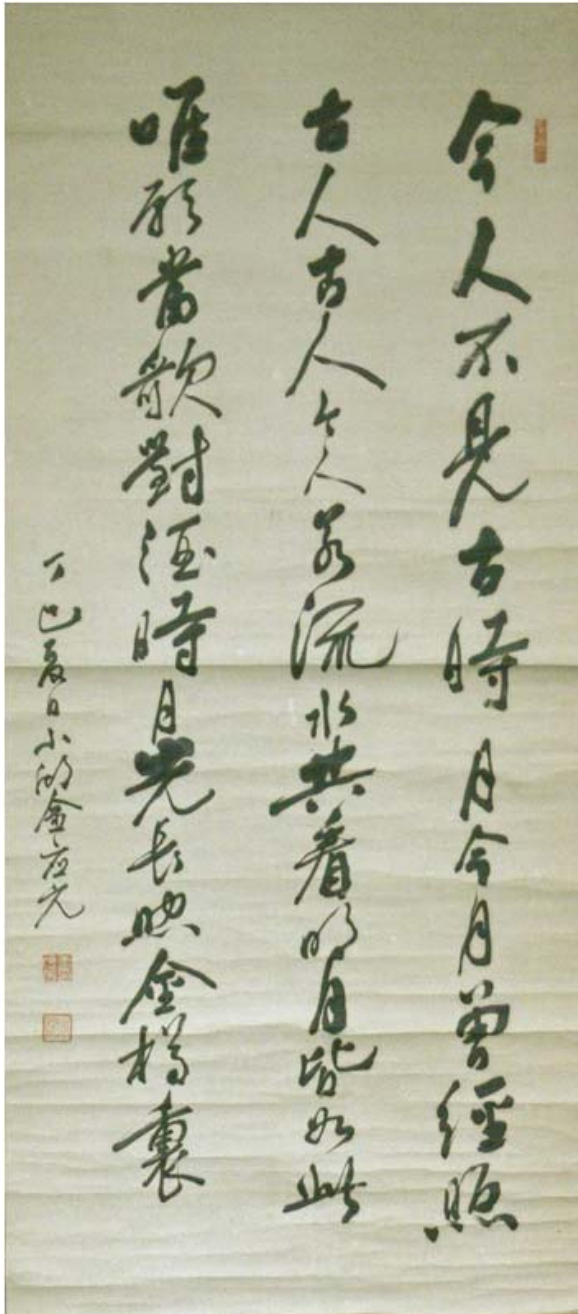 今人不見古時月今月曾經照
古人古人今人若流水共看明月皆如此
唯願當歌對酒時月光長照金樽裏
丁巳夏日小湖金應元